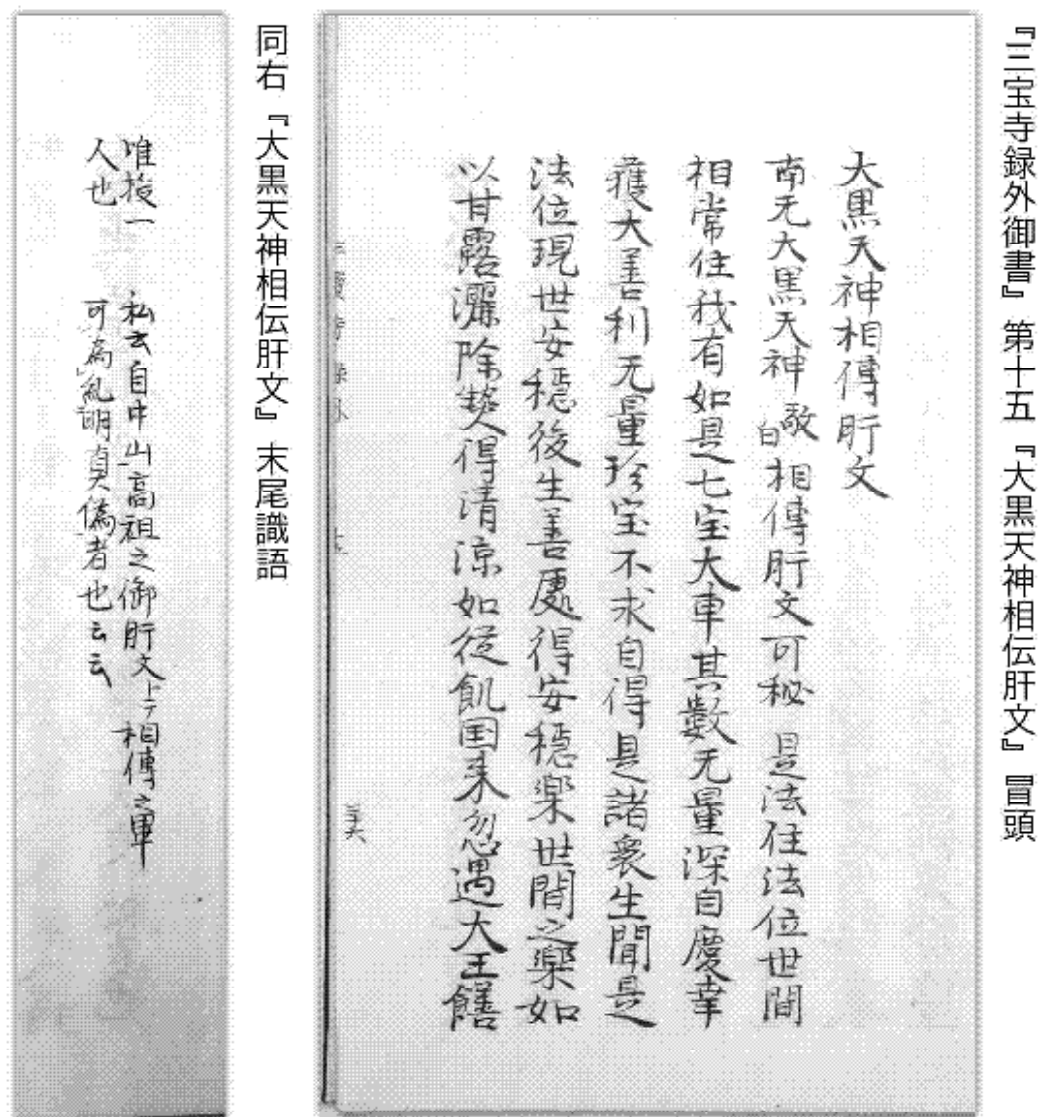 『三宝寺録外御書』第十五『大黒天神相伝肝文』冒頭
大黒天神相傳肝文
南无大黒天神敬白相傳肝文可秘 是法住法位世間
相常住我有如是七宝大車其數无量深自慶幸
獲大善利无量珍宝不求自得是諸衆生聞是
法位現世安穏後生善處得安穏楽世間之楽如
以甘露灑除熱得清涼如従飢国来忽遇大王饍
同右『大黒天神相伝肝文』末尾識語
唯授一
人也
私云自中山高祖之御肝文上テ相傳之畢
可為乱明真偽者也云云